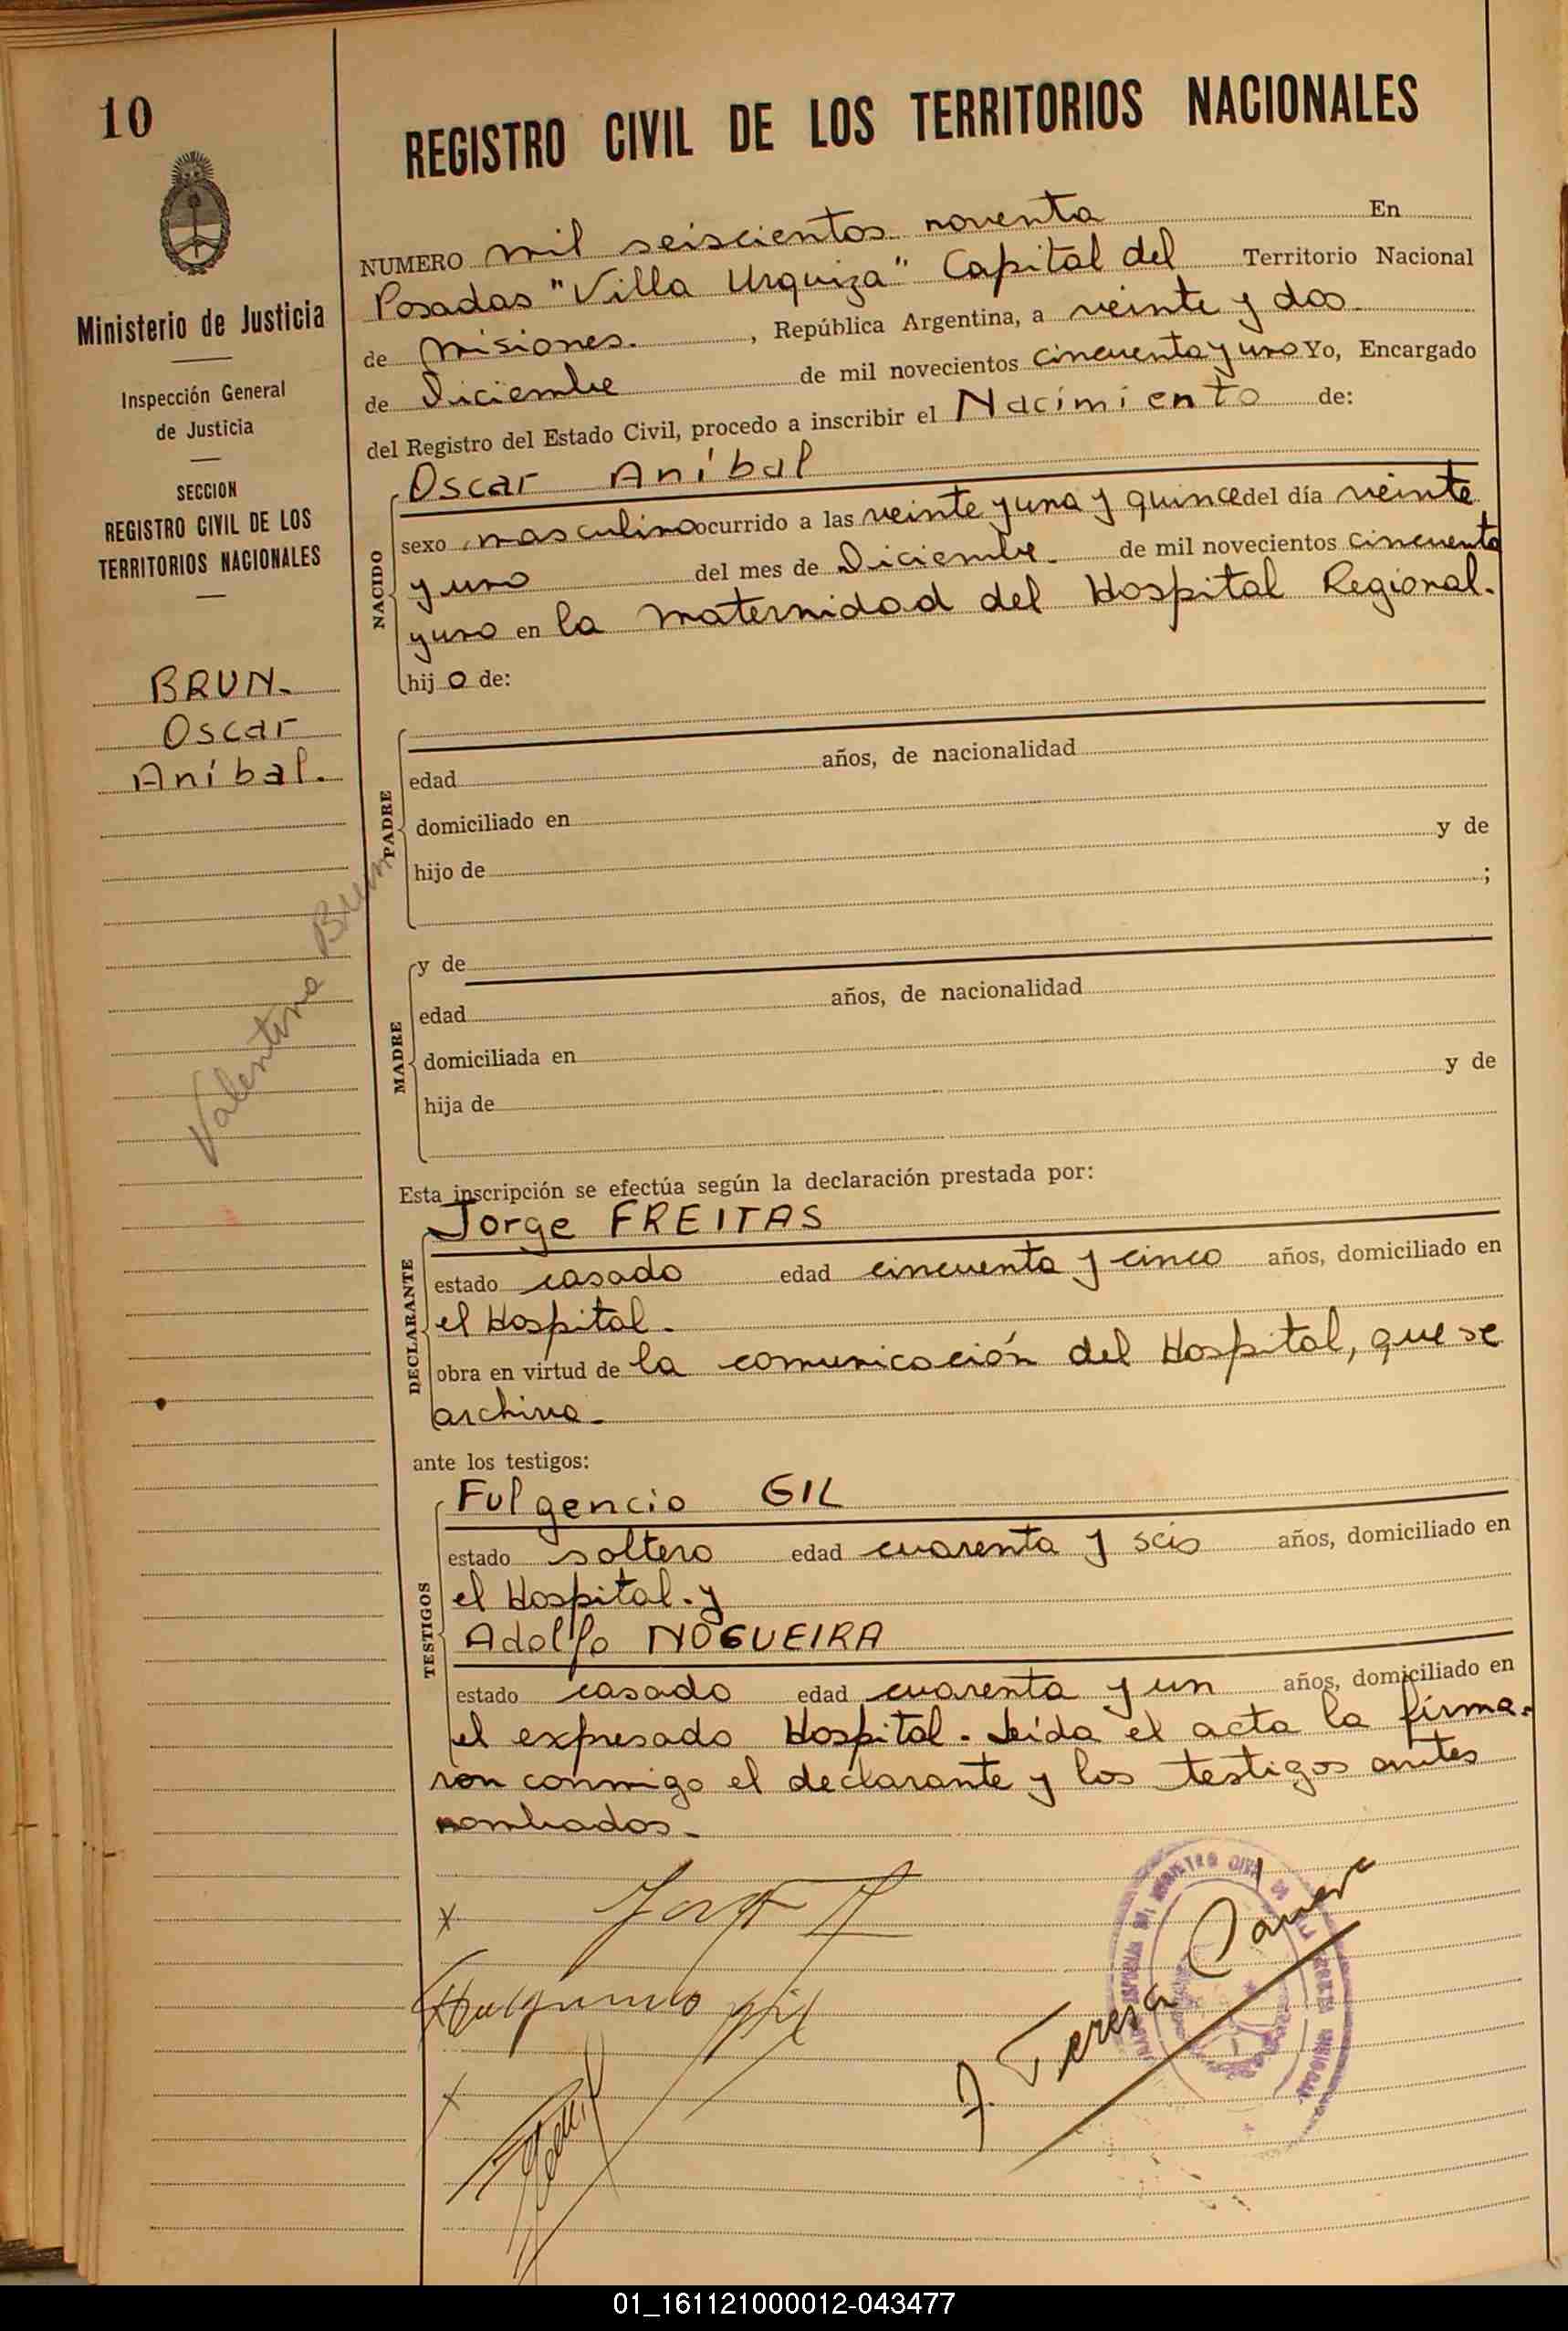 10
REGISTRO CIVIL DE LOS TERRITORIOS NACIONALES
Ministerio de Justicia
Inspección General
de Justicia
SECCION
REGISTRO CIVIL DE LOS
TERRITORIOS NACIONALES
BRUN.
Oscar
Aníbal.
Valentina Brun
NUMERO mil seiscientos noventa En
Posadas "Villa Urquiza" Capital del Territorio Nacional
de Misiones. , República Argentina, a veinte y dos
de Diciembre de mil novecientos cincuenta y uno Yo, Encargado
del Registro del Estado Civil, procedo a inscribir el Nacimiento de:
NACIDO
Oscar Aníbal
sexo masculino ocurrido a las veinte y una y quince del día veinte
y uno del mes de Diciembre. de mil novecientos cincuenta
y uno en la maternidad del Hospital Regional.
hijo de:
PADRE
edad años, de nacionalidad
domiciliado en
hijo de y de
;
MADRE
y de
edad años, de nacionalidad
domiciliada en
hija de y de
Esta inscripción se efectúa según la declaración prestada por:
DECLARANTE
Jorge FREITAS
estado casado edad cincuenta y cinco años, domiciliado en
el Hospital.
obra en virtud de la comunicación del Hospital, que se
archiva.
ante los testigos:
TESTIGOS
Fulgencio GIL
estado soltero edad cuarenta y seis años, domiciliado en
el Hospital. y
Adolfo NOGUEIRA
estado casado edad cuarenta y un años, domiciliado en
el expresado Hospital. Leída el acta la firma-
ron conmigo el declarante y los testigos antes
nombrados.
Fulgencio Gil
J. Teresa
01_161121000012-043477